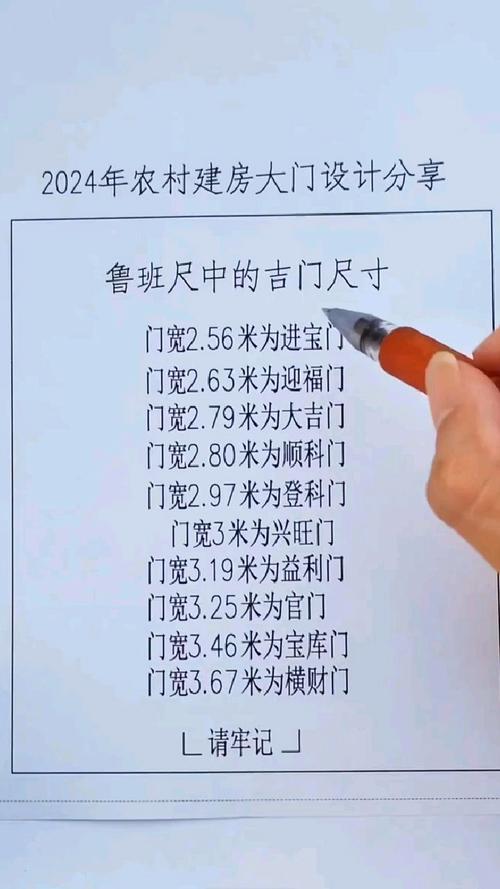 2024年农村建房大门设计分享
鲁班尺中的吉门尺寸
门宽2.56米为进宝门
门宽2.63米为迎福门
门宽2.79米为大吉门
门宽2.80米为顺科门
门宽2.97米为登科门
门宽3米为兴旺门
门宽3.19米为益利门
门宽3.25米为官门
门宽3.46米为宝库门
门宽3.67米为横财门
请牢记